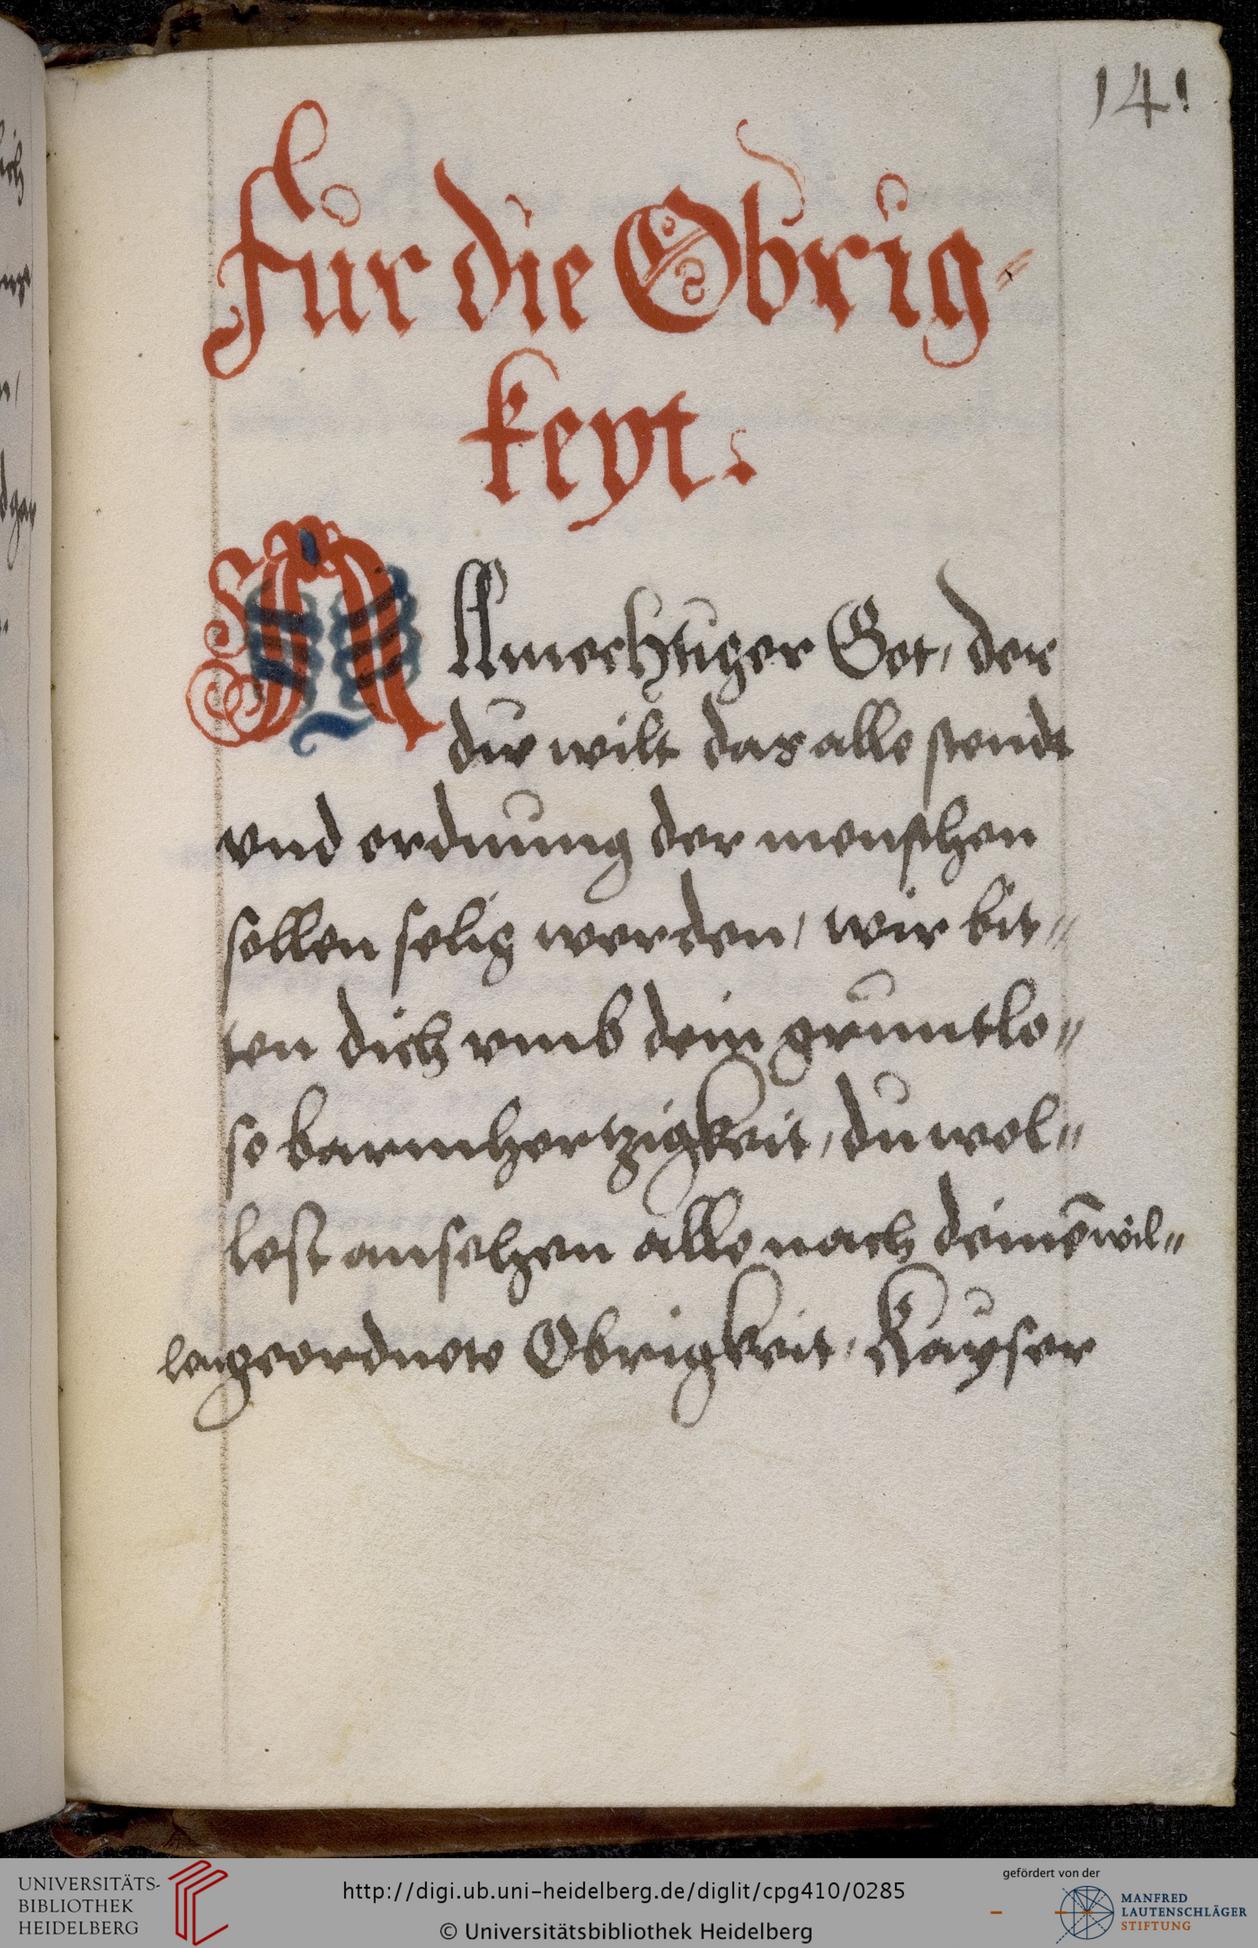 141
Für die Obrig-
keyt.
Allmechtiger Got, der
du wilt das alle stendt
vnd ordnung der menschen
sollen selig werden, wir bit=
ten dich vmb dein gruntlo=
se barmhertzigkeit, du wol=
lest ansehen alle nach deinē wil=
len geordnete Obrigkeit, Kayser
UNIVERSITÄTS-
BIBLIOTHEK
HEIDELBERG
http://digi.ub.uni-heidelberg.de/diglit/cpg410/0285
© Universitätsbibliothek Heidelberg
gefördert von der
MANFRED
LAUTENSCHLÄGER
STIFTUNG